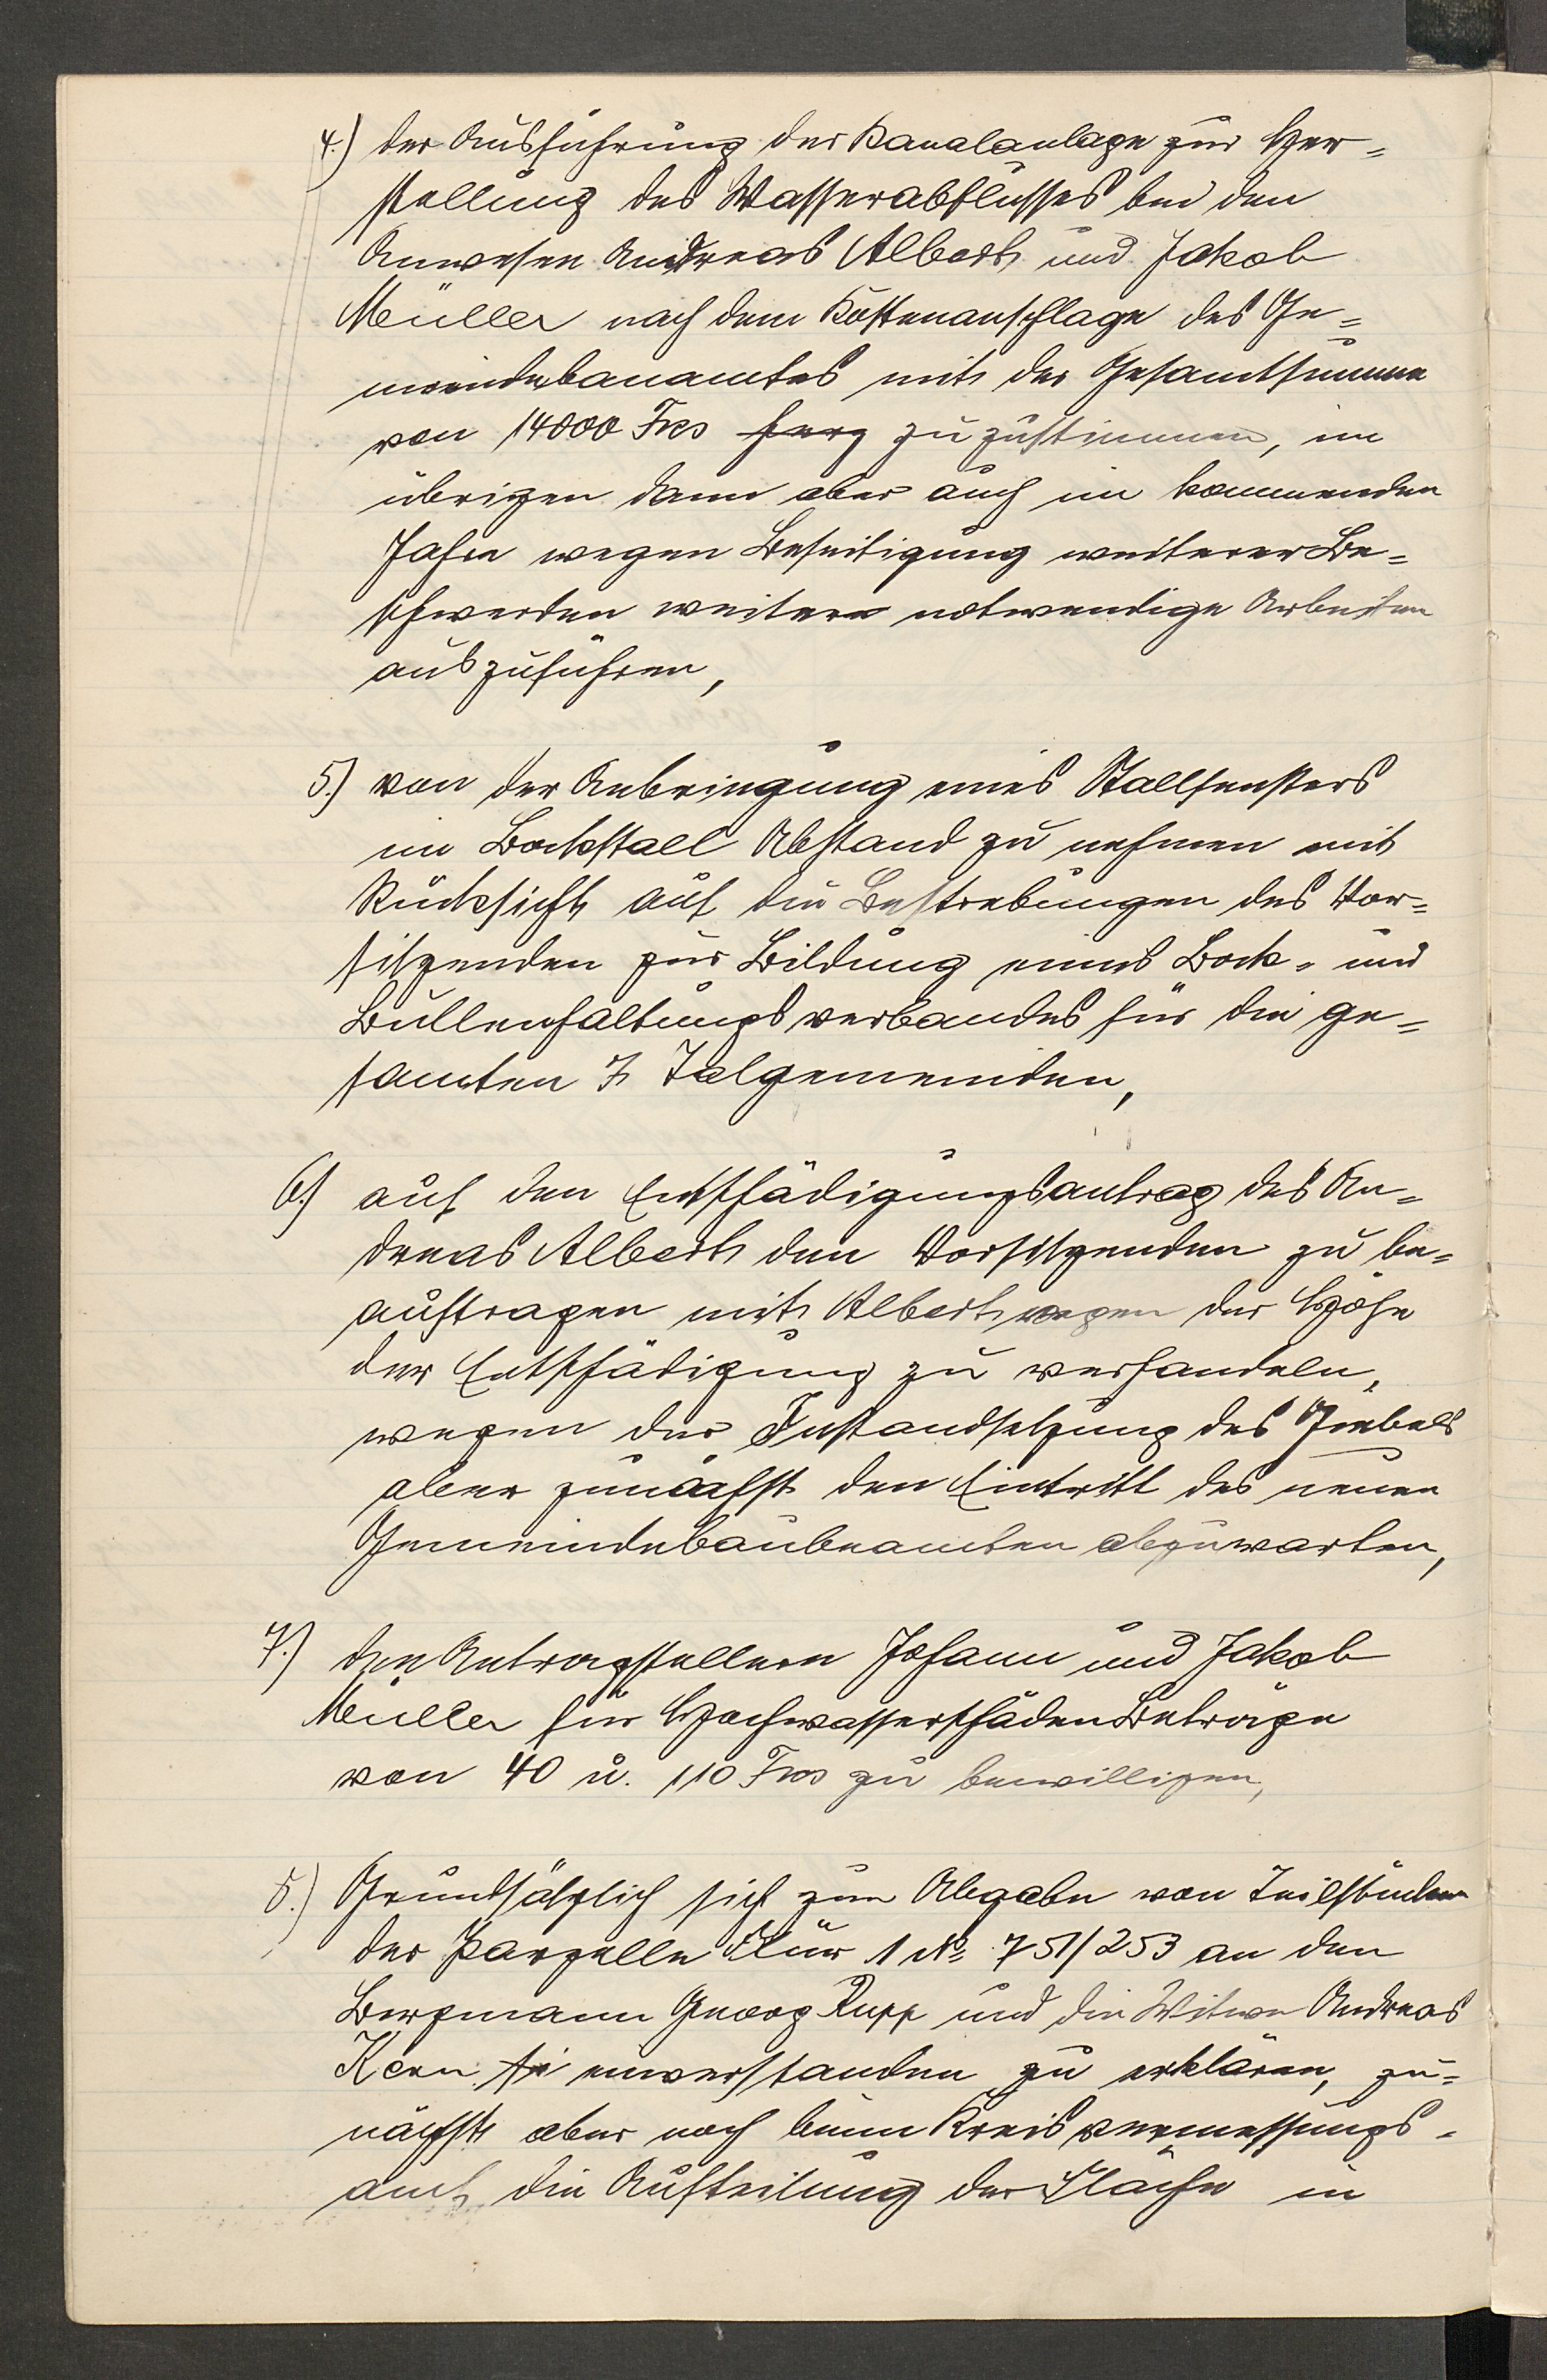 4.) der Ausführung der Kanalanlage zur Her=
stellung des Wasserabflusses bei den
Anwesen Andreas Albert und Jakob
Müller nach dem Kostenanschlage des Ge=
meindebauamtes mit der Gesamtsumme
von 14000 Frcs zu zustimmen, im
übrigen dann aber auch im kommenden
Jahre wegen Beseitigung weiterer Be=
schwerden weitere notwendige Arbeiten
auszuführen,
5.) von der Anbringung eines Stallfensters
im Bockstall Abstand zu nehmen mit
Rücksicht auf die Bestrebungen des Vor=
sitzenden zur Bildung eines Bock- und
Bullenhaltungsverbandes für die ge=
samten 7 Talgemeinden,
6.) auf den Entschädigungsantrag des An=
dreas Albert den Vorsitzenden zu be=
auftragen mit Albert wegen der Höhe
der Entschädigung zu verhandeln,
wegen der Instandsetzung des Giebels
aber zunächst den Eintritt des neuen
Gemeindebaubeamten abzuwarten,
7.) den Antragstellern Johann und Jakob
Müller für Hochwasserschäden Beträge
von 40 u. 110 Frcs zu bewilligen,
8.) Grundsätzlich sich zur Abgabe von Teilstücken
der Parzelle Flur 1 No 751/253 an den
Bergmann Georg Rupp und die Witwe Andreas
Kern einverstanden zu erklären, zu=
nächst aber noch beim Kreisvermessungs-
amt die Aufteilung der Fläche in